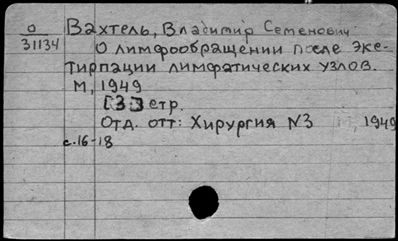 О
31134
Вахтель, Владимир Семенович
О лимфообращении после экс-
тирпации лимфатических узлов.
М, 1949
[3] стр.
Отд. отт: Хирургия №3, 1949
с.16-18